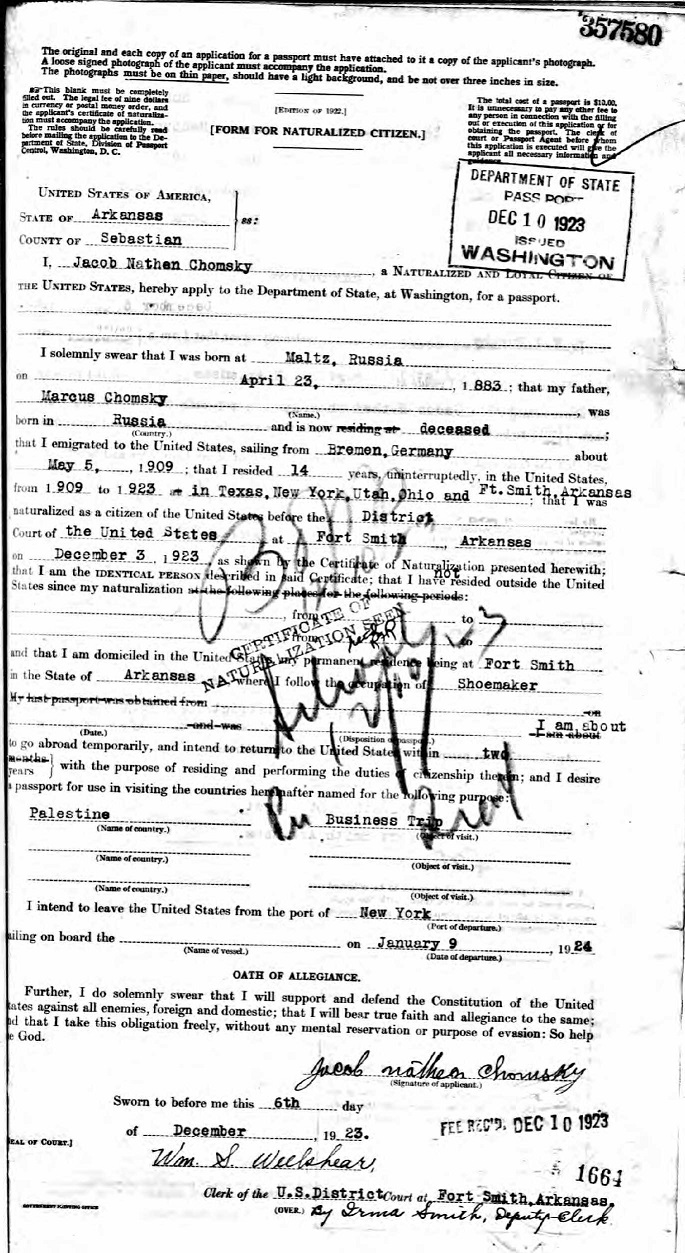 357580
The original and each copy of an application for a passport must have attached to it a copy of the applicant's photograph.
A loose signed photograph of the applicant must accompany the application.
The photographs must be on thin paper, should have a light background, and be not over three inches in size.
This blank must be completely
filled out. The legal fee of nine dollars
in currency or postal money order, and
the applicant's certificate of naturaliza-
tion must accompany the application.
The rules should be carefully read
before mailing the application to the De-
partment of State, Division of Passport
Control, Washington, D. C.
[EDITION OF 1922.]
[FORM FOR NATURALIZED CITIZEN.]
The total cost of a passport is $10.00.
It is unnecessary to pay any other fee to
any person in connection with the filling
out or execution of this application or for
obtaining the passport. The clerk of
court or Passport Agent before whom
this application is executed will give the
applicant all necessary information and
DEPARTMENT OF STATE
PASSPORT
DEC 10 1923
ISSUED
WASHINGTON
UNITED STATES OF AMERICA,
STATE OF Arkansas
ss:
COUNTY OF Sebastian
I, Jacob Nathen Chomsky, a NATURALIZED AND LOYAL CITIZEN OF
THE UNITED STATES, hereby apply to the Department of State, at Washington, for a passport.
I solemnly swear that I was born at Maltz, Russia
on April 23, 1883; that my father,
Marcus Chomsky, was
(Name.)
born in Russia and is now residing at deceased;
(Country.)
that I emigrated to the United States, sailing from Bremen, Germany about
May 5, 1909; that I resided 14 years, uninterruptedly, in the United States,
from 1909 to 1923 at in Texas, New York, Utah, Ohio and Ft. Smith, Arkansas; that I was
naturalized as a citizen of the United States before the District
Court of the United States at Fort Smith, Arkansas
on December 3, 1923, as shown by the Certificate of Naturalization presented herewith;
that I am the IDENTICAL PERSON described in said Certificate; that I have not resided outside the United
States since my naturalization at the following places for the following periods:
, from to
, from to
CERTIFICATE OF
NATURALIZATION SEEN
and that I am domiciled in the United States, my permanent residence being at Fort Smith
in the State of Arkansas where I follow the occupation of Shoemaker
My last passport was obtained from on
and was I am about
(Date.) (Disposition of passport.) I am about
to go abroad temporarily, and intend to return to the United States within two
months
years } with the purpose of residing and performing the duties of citizenship therein; and I desire
a passport for use in visiting the countries hereinafter named for the following purpose:
Palestine Business Trip
(Name of country.) (Object of visit.)
(Name of country.) (Object of visit.)
(Name of country.) (Object of visit.)
I intend to leave the United States from the port of New York
(Port of departure.)
ailing on board the on January 9, 1924
(Name of vessel.) (Date of departure.)
OATH OF ALLEGIANCE.
Further, I do solemnly swear that I will support and defend the Constitution of the United
tates against all enemies, foreign and domestic; that I will bear true faith and allegiance to the same;
nd that I take this obligation freely, without any mental reservation or purpose of evasion: So help
e God.
Jacob nathen Chomsky
(Signature of applicant.)
Sworn to before me this 6th day
of December, 1923.
FEE REC'D. DEC 10 1923
EAL OF COURT.]
Wm. S. Wellshear,
1664
Clerk of the U.S.District Court at Fort Smith, Arkansas.
(OVER.) By Irma Smith, Deputy Clerk
GOVERNMENT PRINTING OFFICE